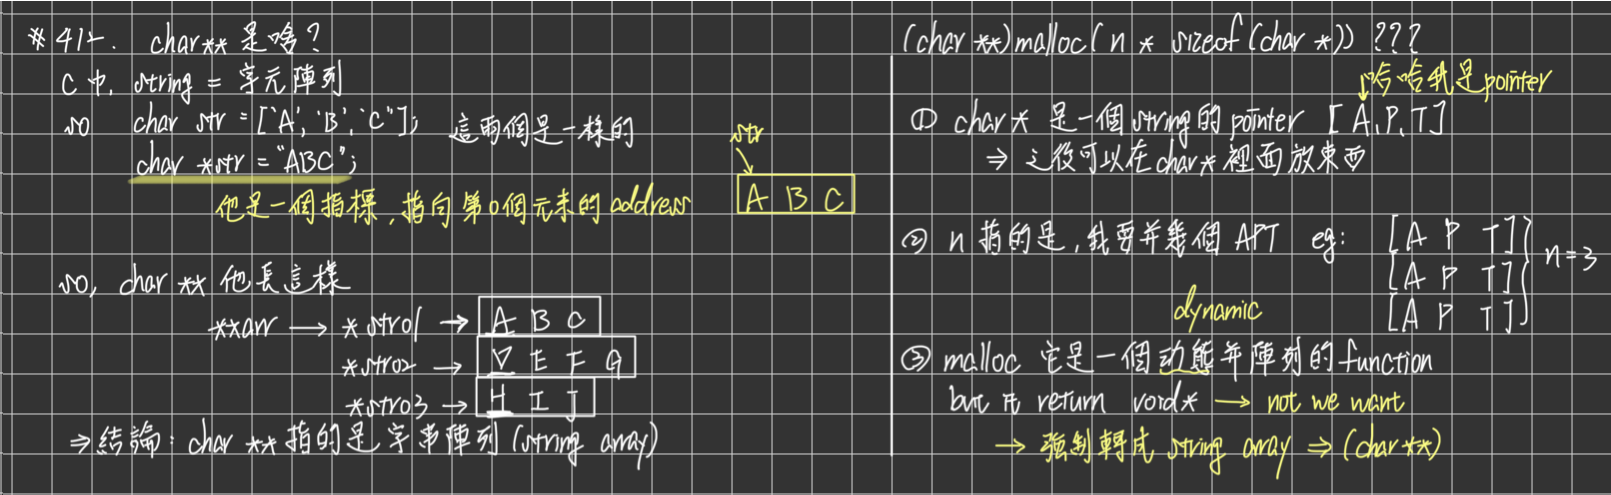 *412. char** 是啥?
C 中, string = 字元陣列
so char str = ['A', 'B', 'C'];
這兩個是一樣的
char *str = "ABC";
他是一個指標, 指向第0個元素的 address
str
A B C
so, char ** 他長這樣
**arr → * str01 → A B C
*str02 → D E F G
*str03 → H I J
⇒ 結論: char ** 指的是字串陣列 (string array)
(char **)malloc( n * sizeof (char *)) ???
哈哈我是 pointer
① char* 是一個 string 的 pointer [A, P, T]
⇒ 之後可以在 char* 裡面放東西
② n 指的是, 我要幾個 APT eg: [A P T]
[A P T] n=3
[A P T]
dynamic
③ malloc 它是一個動態陣列的 function
but it return void* → not we want
→ 強制轉成 string array ⇒ (char**)